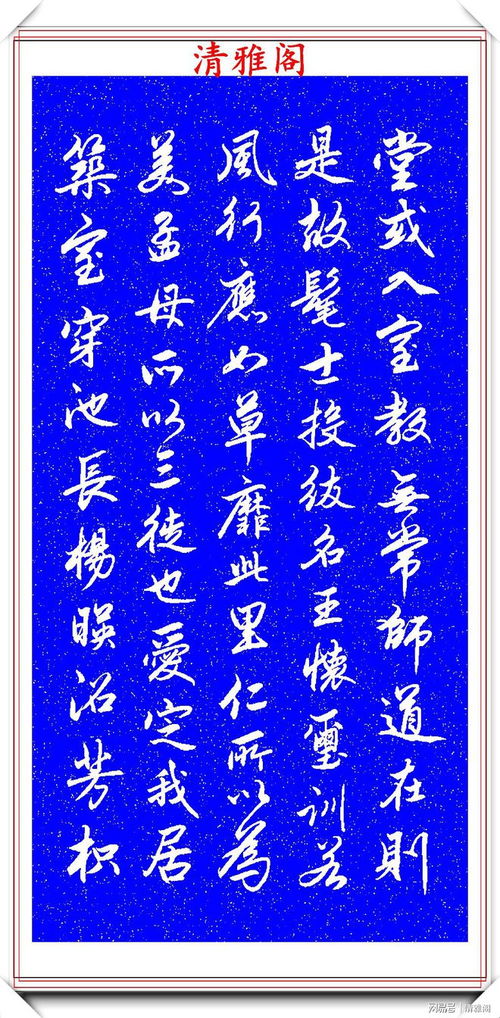 清雅阁
堂或入室教無常師道在則
是故髦士投紱名王懷璽訓若
風行應如草靡此里仁所以為
美孟母所以三徙也愛定我居
築室穿池長楊暎沼芳枳
网易号 | 清雅阁